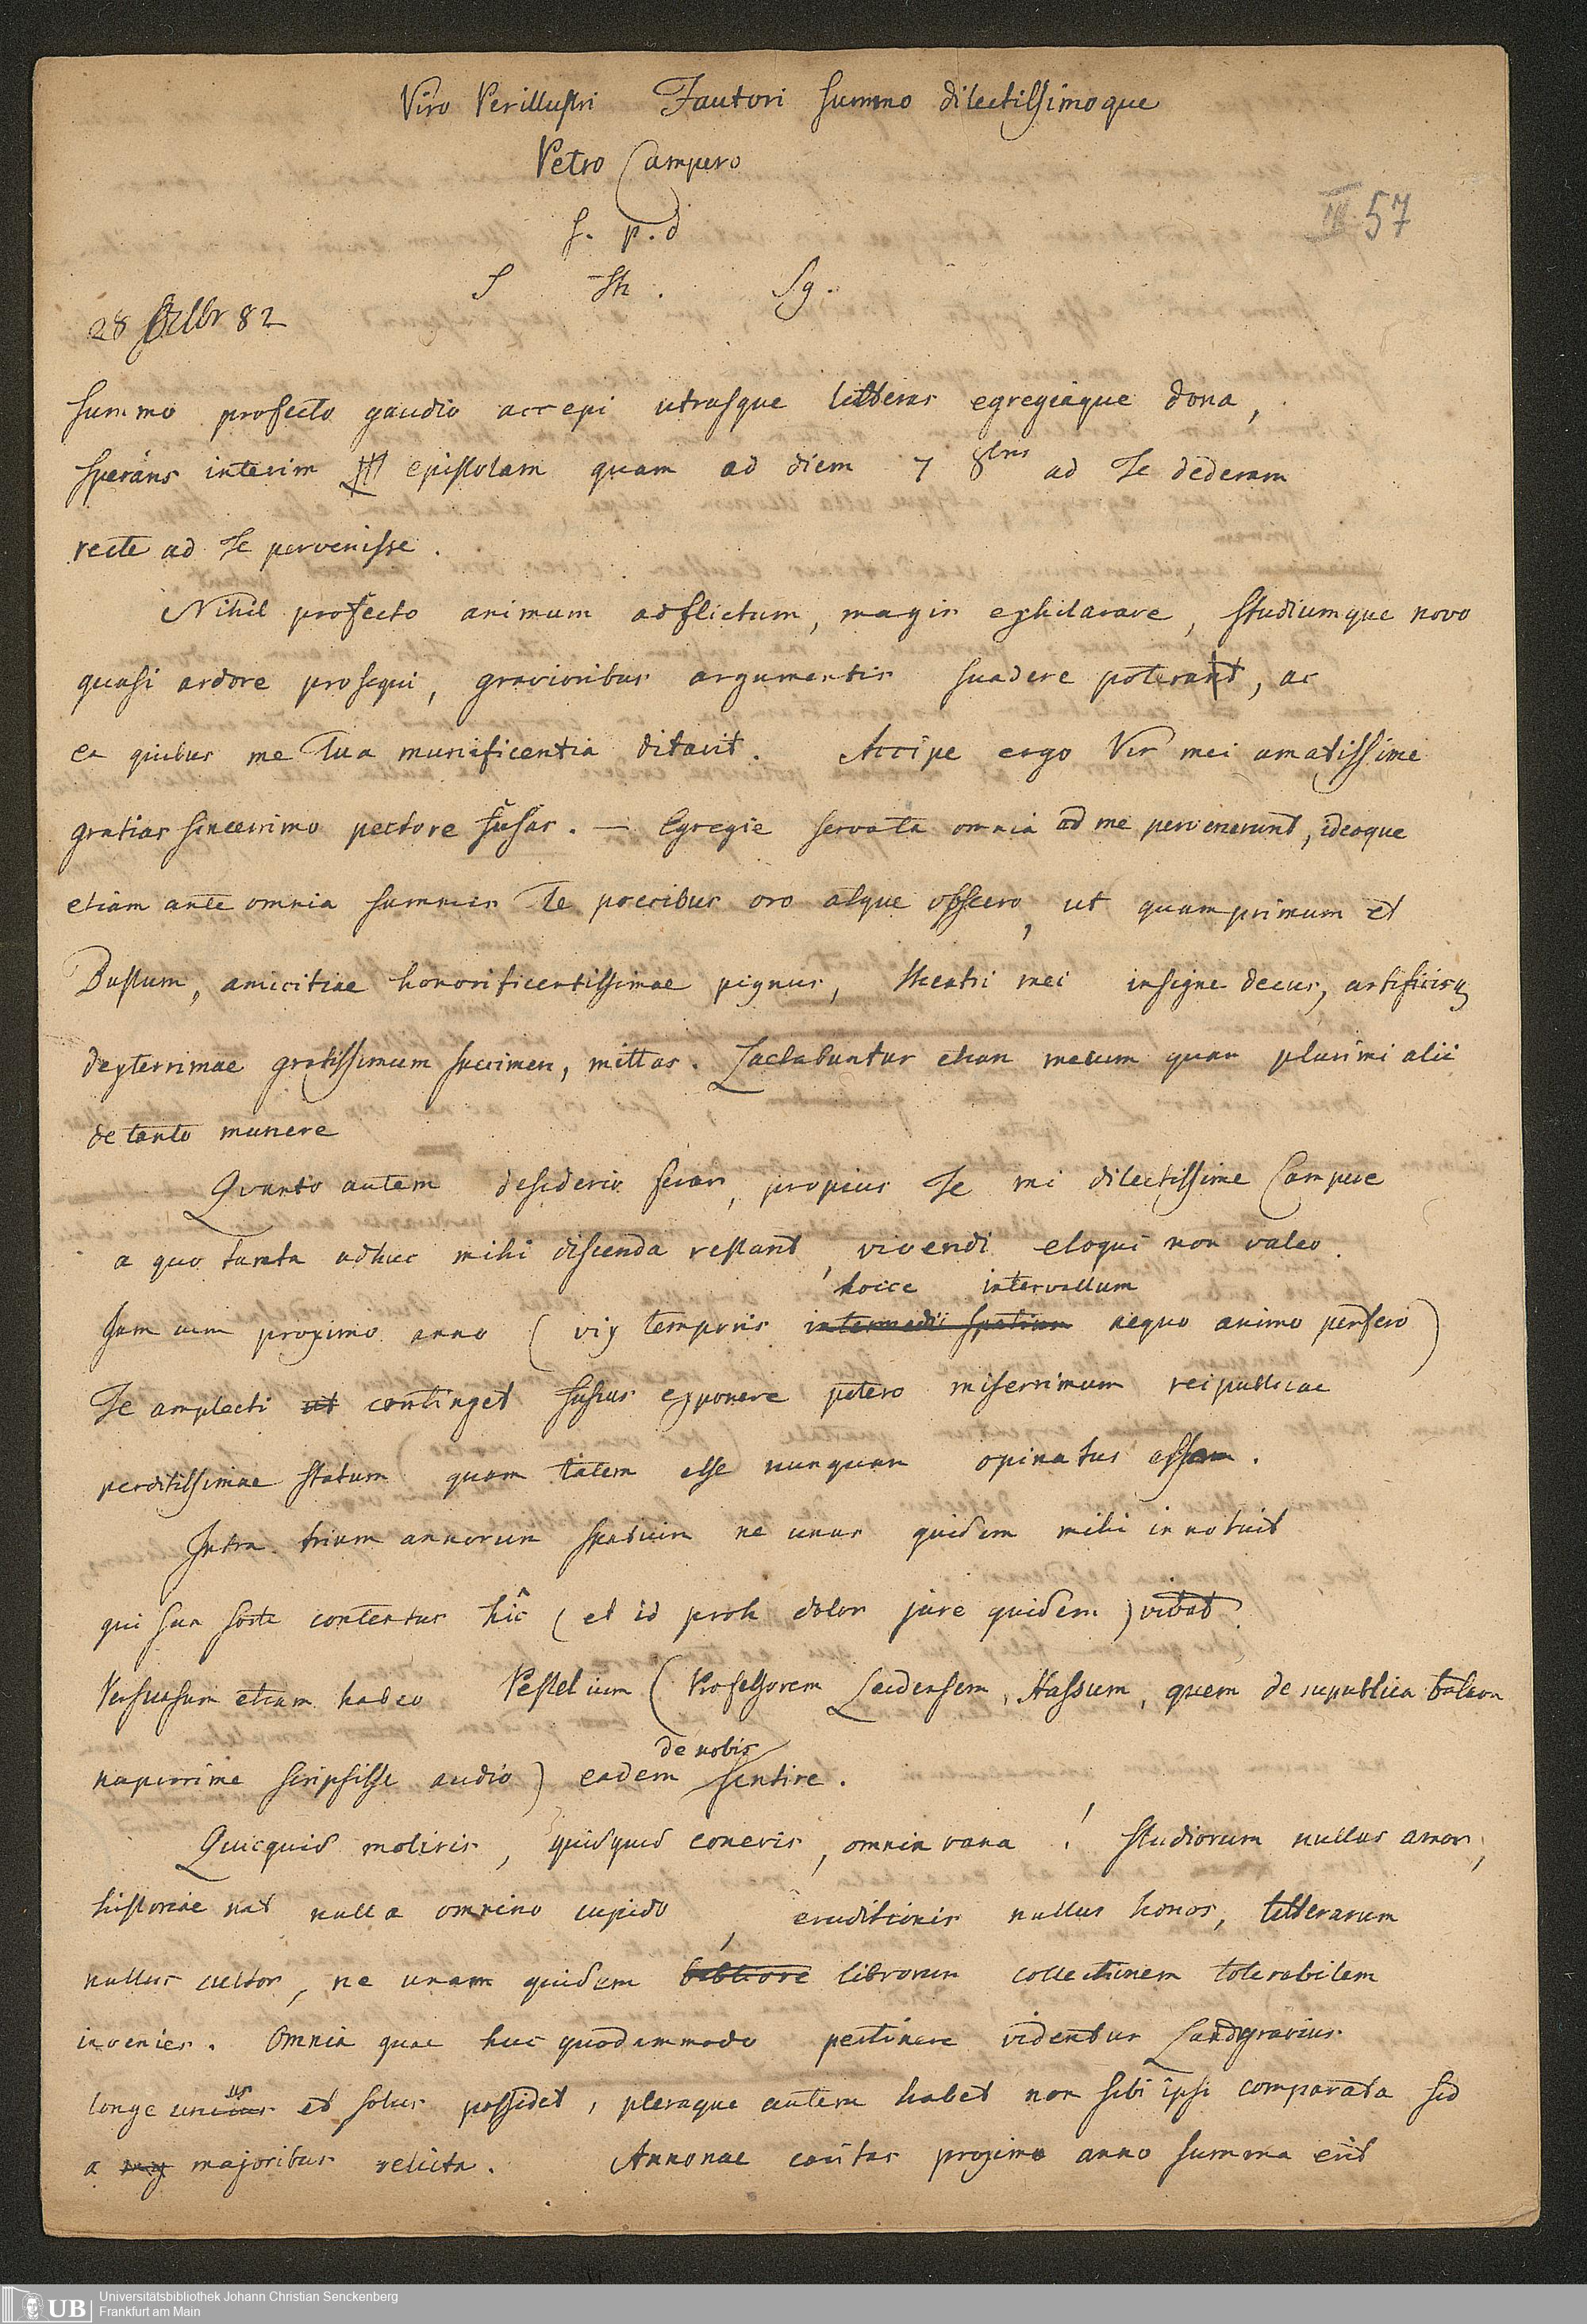 Viro Perillustri Fautori summo dilectissimoque
Petro Campero
S. p. d
S Th. Sg.
III 57
28 8tlbr 82
Summo profecto gaudio accepi utrasque litteras egregiaque dona,
sperans interim epistolam quam ad diem 7 8bris ad Te dederam
recte ad Te pervenisse.
Nihil profecto animum adflictum, magis exhilarare, studiumque novo
quasi ardore prosequi, gravioribus argumentis suadere poterant, ac
ea quibus me Tua munificentia ditavit. Accipe ergo Vir mei amatissime
gratias sincerrimo pectore fusas. — Egregie servata omnia ad me pervenerunt, ideoque
etiam ante omnia summis Te precibus oro atque obsecro, ut quam primum et
Bustum, amicitiae honorificentissimae pignus, theatri mei insigne decus, artificisq
dexterrimae gratissimum specimen, mittas. Laetabuntur etiam mecum quam plurimi alii
de tanto munere
Quanto autem desiderio feror, propius Te mi dilectissime Campere
a quo tanta adhuc mihi discenda restant, vivendi eloqui non valeo.
hocce intervallum
Jam cum proximo anno (vix temporis intermedii spatium aequo animo perfero)
Te amplecti ut continget fusius exponere potero miserrimum reipublicae
perditissimae statum quam talem esse nunquam opinatus essem.
Intra trium annorum spatium ne unus quidem mihi innotuit
qui sua sorte contentus hîc (et id proh dolor jure quidem) vivat.
Persuasum etiam habeo Pestelium (Professorem Leidensem, Hassum, quem de republica batava
nuperrime scripsisse audio) eadem sentire.
de nobis
Quicquid moliris, quidquid coneris, omnia vana! Studiorum nullus amor,
historiae nat nulla omnino cupido, eruditionis nullus honos, litterarum
nullus cultor, ne unam quidem bibliore librorum collectionem tolerabilem
invenies. Omnia quae huc quodammodo pertinere videntur Landgravius
longe unicus et solus possidet, pleraque autem habet non sibi ipsi comparata sed
us
a maj majoribus relicta. Annonae caritas proximo anno summa erit
UB Universitätsbibliothek Johann Christian Senckenberg
Frankfurt am Main